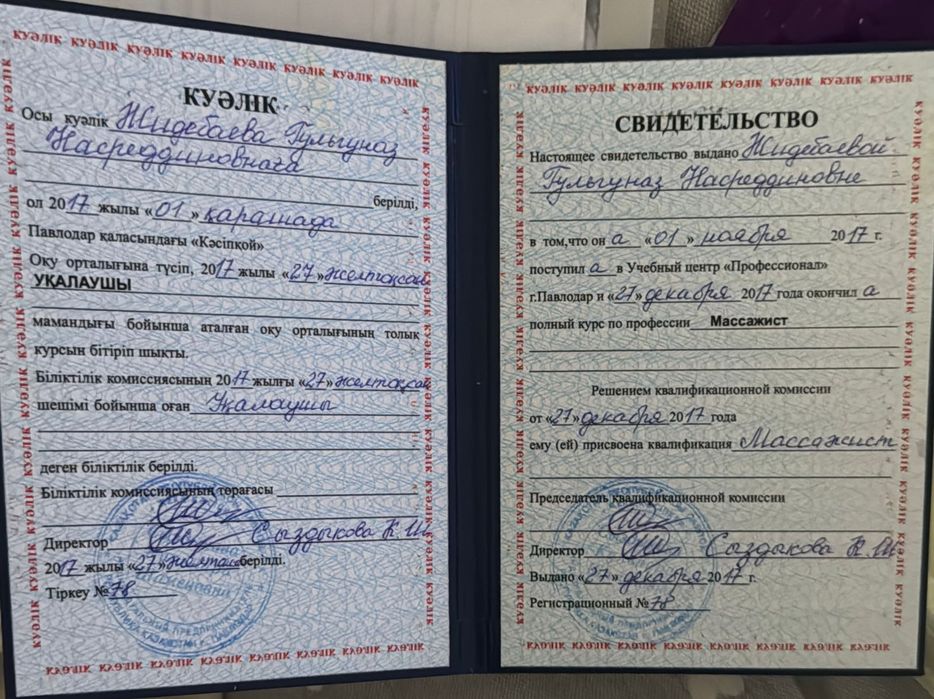 КУӘЛІК КУӘЛІК КУӘЛІК КУӘЛІК КУӘЛІК КУӘЛІК КУӘЛІК КУӘЛІК
КУӘЛІК
Осы куәлік Жидебаева Гульгуназ
Насреддиновнаға
берілді,
ол 2017 жылы «01» қарашада
Павлодар қаласындағы «Кәсіпқой»
Оқу орталығына түсіп, 2017 жылы «27» желтоқсан
УҚАЛАУШЫ
мамандығы бойынша аталған оқу орталығының толық
курсын бітіріп шықты.
Біліктілік комиссиясының 2017 жылғы «27» желтоқсан
шешімі бойынша оған Уқалаушы
деген біліктілік берілді.
Біліктілік комиссиясының төрағасы
Директор Сыздыкова К.Ш
2017 жылы «27» желтоқ берілді.
Тіркеу №78
КУӘЛІК КУӘЛІК КУӘЛІК КУӘЛІК КУӘЛІК КУӘЛІК КУӘЛІК КУӘЛІК
КУӘЛІК КУӘЛІК КУӘЛІК КУӘЛІК КУӘЛІК КУӘЛІК КУӘЛІК КУӘЛІК
СВИДЕТЕЛЬСТВО
Настоящее свидетельство выдано Жидебаевой
Гульгуназ Насреддиновне
в том,что он а «01» ноября 2017 г.
поступил а в Учебный центр «Профессионал»
г.Павлодар и «27» декабря 2017 года окончил а
полный курс по профессии Массажист
Решением квалификационной комиссии
от «27» декабря 2017 года
ему (ей) присвоена квалификация Массажист
Председатель квалификационной комиссии
Директор Сыздыкова К.Ш
Выдано «27» декабря 2017 г.
Регистрационный №78
КУӘЛІК КУӘЛІК КУӘЛІК КУӘЛІК КУӘЛІК КУӘЛІК КУӘЛІК КУӘЛІК